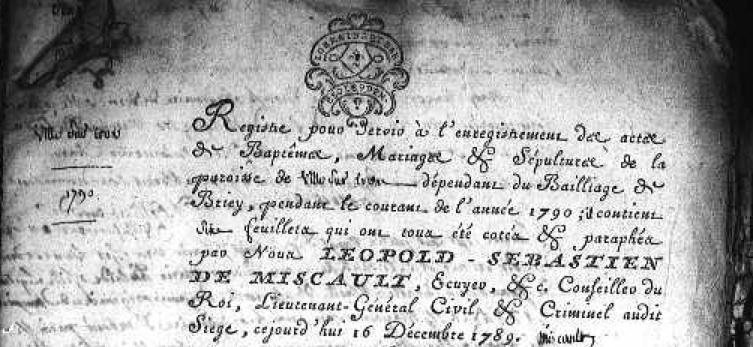 Ville sur iron
1790
Registre pour servir à l'enregistrement des actes
de Baptêmes, Mariages & Sépultures de la
paroisse de Ville sur iron dépendant du Bailliage de
Briey, pendant le courant de l'année 1790; il contient
six feuillets qui ont tous été cotés & paraphés
par Nous LEOPOLD-SEBASTIEN
DE MISCAULT, Ecuyer, &c. Conseiller du
Roi, Lieutenant-Général Civil & Criminel audit
Siége, cejourd'hui 16 Décembre 1789. Miscault